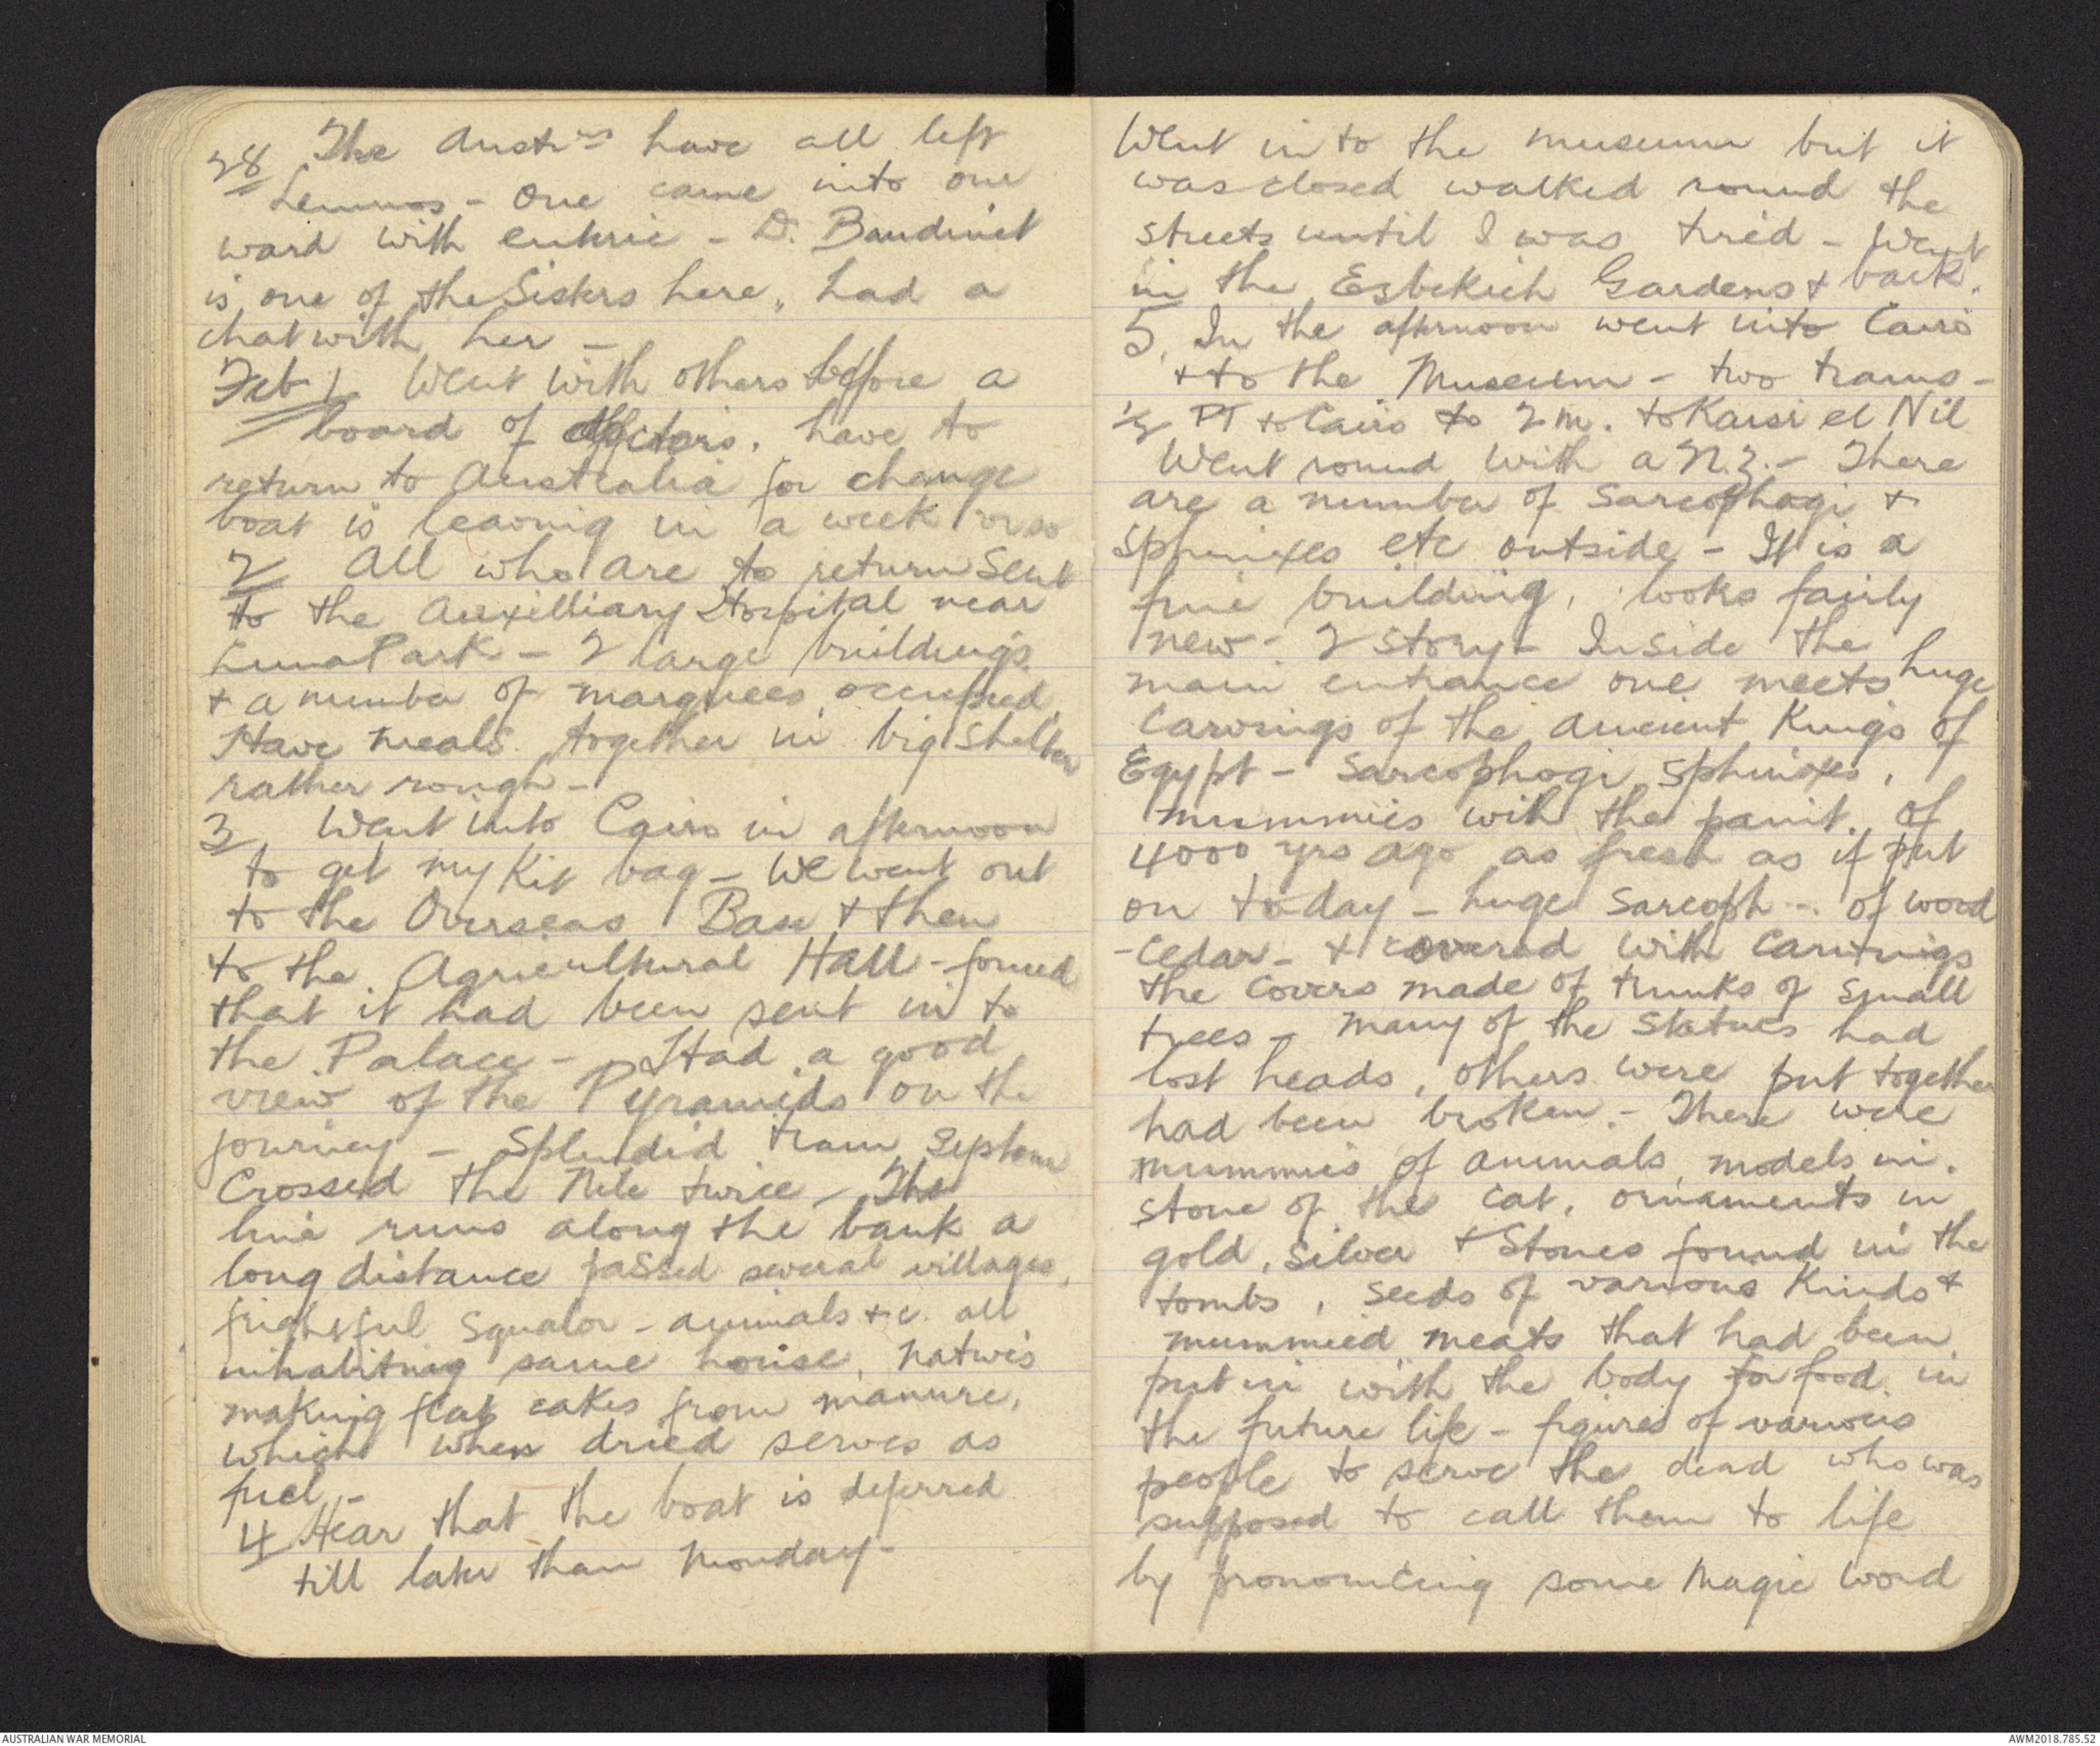 28 The Austns have all left
Lemnos - One came into our
ward with enteric - D. Baudinet
is one of the Sisters here, had a
chat with her -
Feb 1 Went with others before a
board of doctors. have to
return to Australia for change
boat is leaving in a week or so
2 All who are to return sent
to the Auxilliary Hospital near
Luna Park - 2 large buildings
+ a number of marquees occupied
Have meals together in big shelter
rather rough -
3 Went into Cairo in afternoon
to get my Kit bag - We went out
to the Overseas Base + then
to the Agricultural Hall - found
that it had been sent in to
the Palace - Had a good
view of the Pyramids on the
journey - Splendid tram system
Crossed the Nile twice - The
line runs along the bank a
long distance passed several villages,
frightful squalor - animals +c. all
inhabiting same house. Natives
making flat cakes from manure,
which when dried serves as
fuel -
4 Hear that the boat is deferred
till later than Monday -
Went in to the museum but it
was closed walked round the
streets until I was tired - Went
in the Ezbekieh Gardens + back.
5. In the afternoon went into Cairo
+ to the Museum - two trams -
1/2 PT to Cairo to 2 m. to Karsi el Nil
Went round with a N.Z. - There
are a number of Sarcophagi +
Sphinxes etc outside - It is a
fine building, looks fairly
new - 2 story - Inside the
main entrance one meets huge
carvings of the ancient Kings of
Egypt - Sarcophogi, sphinxes,
mummies with the paint of
4000 yrs ago as fresh as if put
on today - huge Sarcoph... of wood
- Cedar - + covered with carvings
the covers made of trunks of small
trees - Many of the statues had
lost heads, others were put together
had been broken. - There were
mummies of animals, models in
stone of the cat, ornaments in
gold, silver + Stones found in the
tombs, seeds of various Kinds +
mummied meats that had been
put in with the body for food in
the future life - figures of various
people to serve the dead who was
supposed to call them to life
by pronouncing some magic word
AUSTRALIAN WAR MEMORIAL
AWM2018.785.52